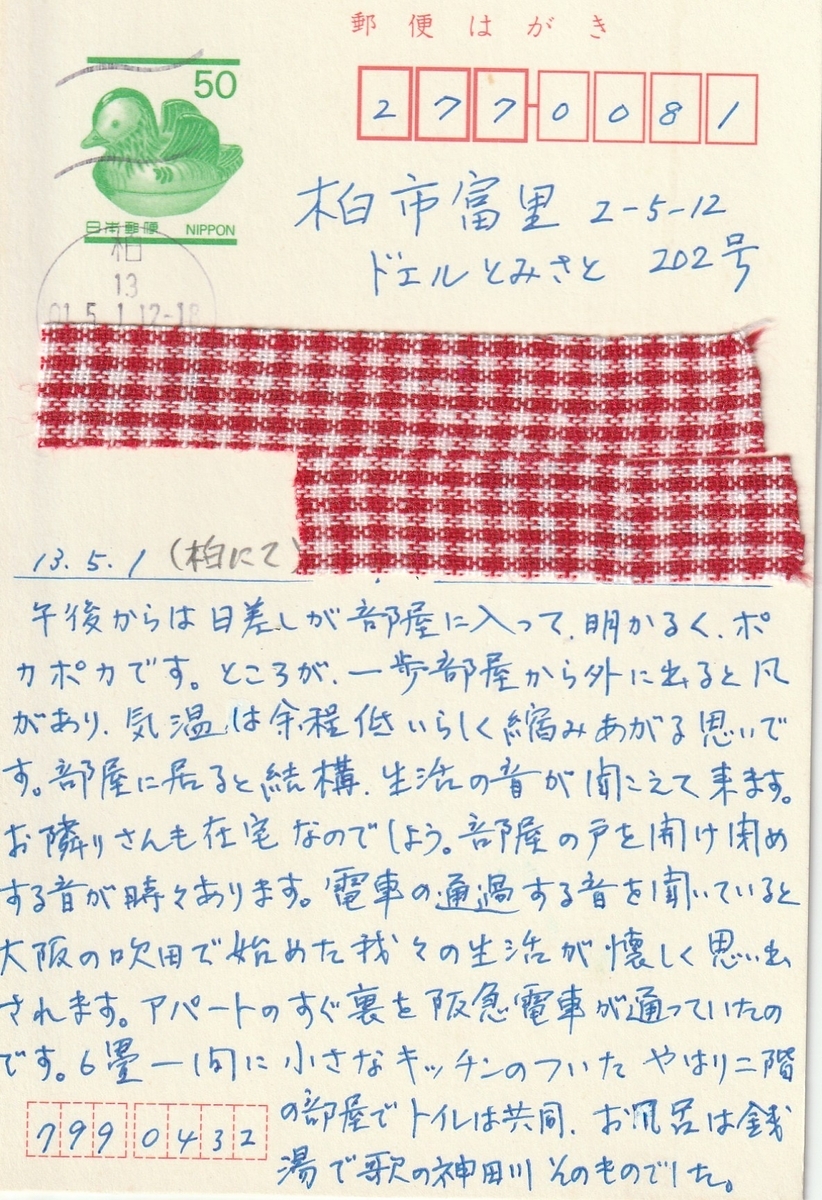 郵便はがき
50
日本郵便 NIPPON
柏
13
01.5.1 12-18
2770081
柏市富里 2-5-12
ドエルとみさと 202号
13.5.1 (柏にて)
午後からは日差しが部屋に入って、明かるく、ポ
カポカです。ところが、一歩部屋から外に出ると風
があり、気温は余程低いらしく縮みあがる思いで
す。部屋に居ると結構、生活の音が聞こえて来ます。
お隣りさんも在宅なのでしよう。部屋の戸を開け閉め
する音が時々あります。電車の通過する音を聞いていると
大阪の吹田で始めた我々の生活が懐しく思い出
されます。アパートのすぐ裏を阪急電車が通っていたの
です。6畳一間に小さなキッチンのついたやはり二階
の部屋でトイレは共同、お風呂は銭
湯で歌の神田川そのものでした。
7990432